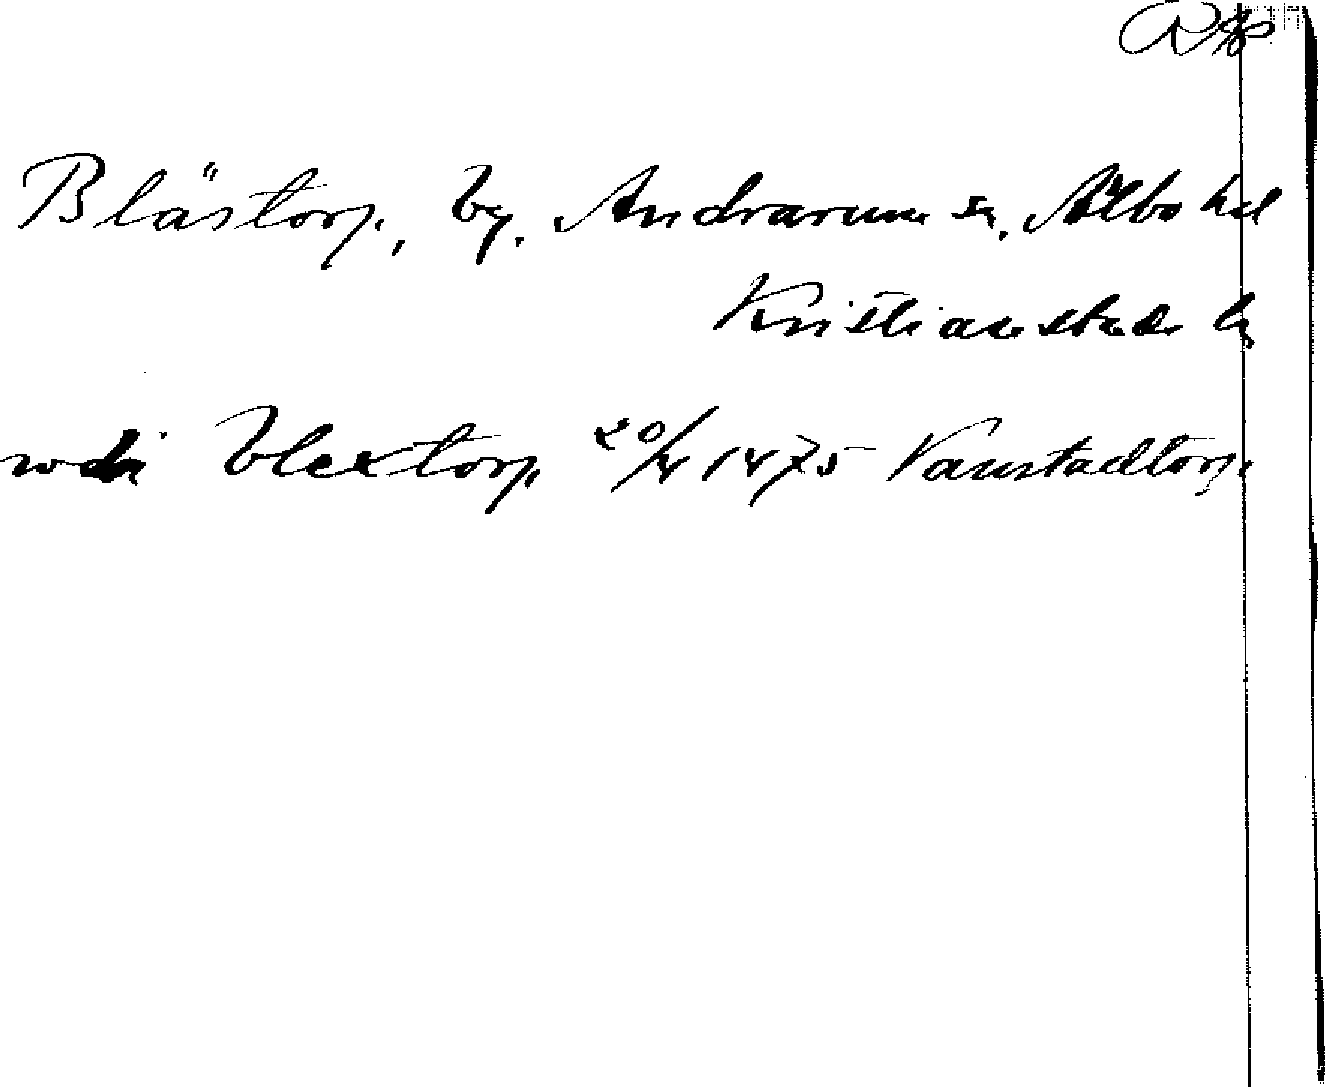 Blästorp, by, Andrarum sn, Albo hd
Kristianstads l
i Blextorp 20/4 1475 Vanstadtorp